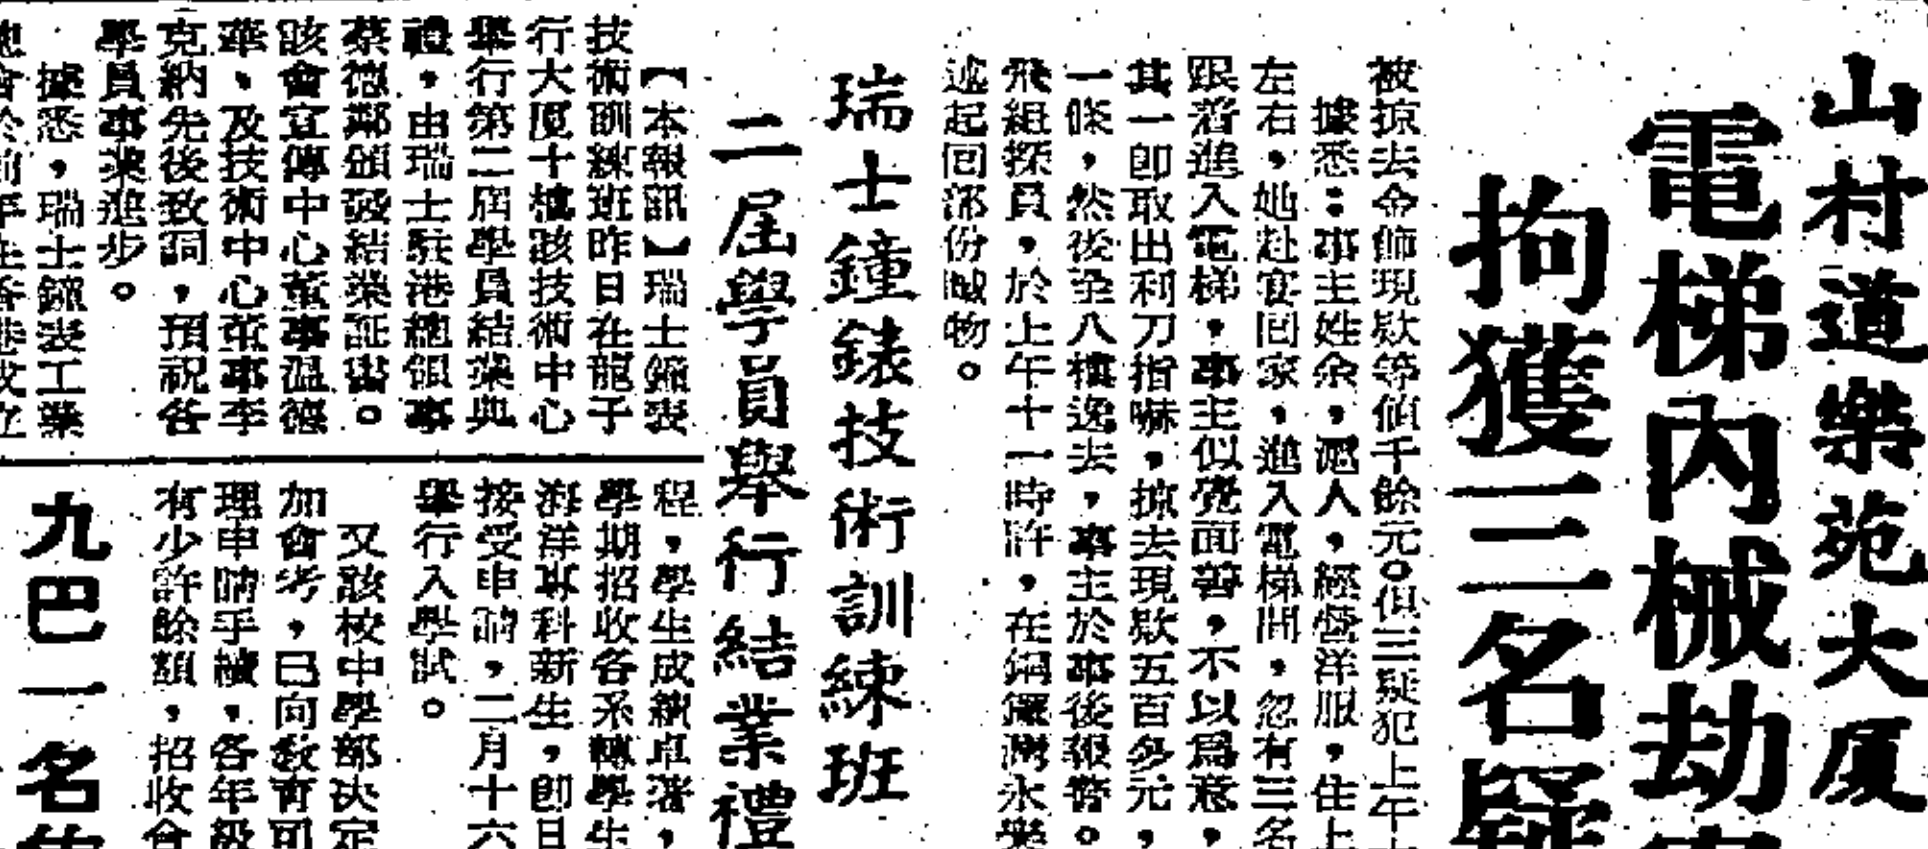 山村道樂苑大厦
電梯內械劫
拘獲三名疑
被掠去金飾現欵等值千餘元。俱三疑犯上午
據悉：事主姓余，滬人，經營洋服，住上
左右，她赴宴囘家，進入電梯間，忽有三名
跟着進入電梯，事主似覺面善，不以爲意，
其一卽取出利刀指嚇，掠去現欵五百多元，
一條，然後至八樓逸去，事主於事後報警。
飛組探員，於上午十一時許，在銅鑼灣永樂
述起囘部份贓物。
瑞士鐘錶技術訓練班
二屆學員舉行結業禮
【本報訊】瑞士鐘表
技術訓練班昨日在龍子
行大厦十樓該技術中心
舉行第二屆學員結業典
禮，由瑞士駐港總領事
蔡德鄰頒發結業証書。
該會宣傳中心董事溫德
華、及技術中心董事李
克納先後致詞，預祝各
學員事業進步。
據悉，瑞士鐘表工業
會於前年在香港成立
程，學生成績卓著，
學期招收各系轉學生
海洋專科新生，卽日
接受申請，二月十六
舉行入學試。
又該校中學部決定
加會考，已向敎育司
理申請手續，各年級
有少許餘額，招收會
九巴一名